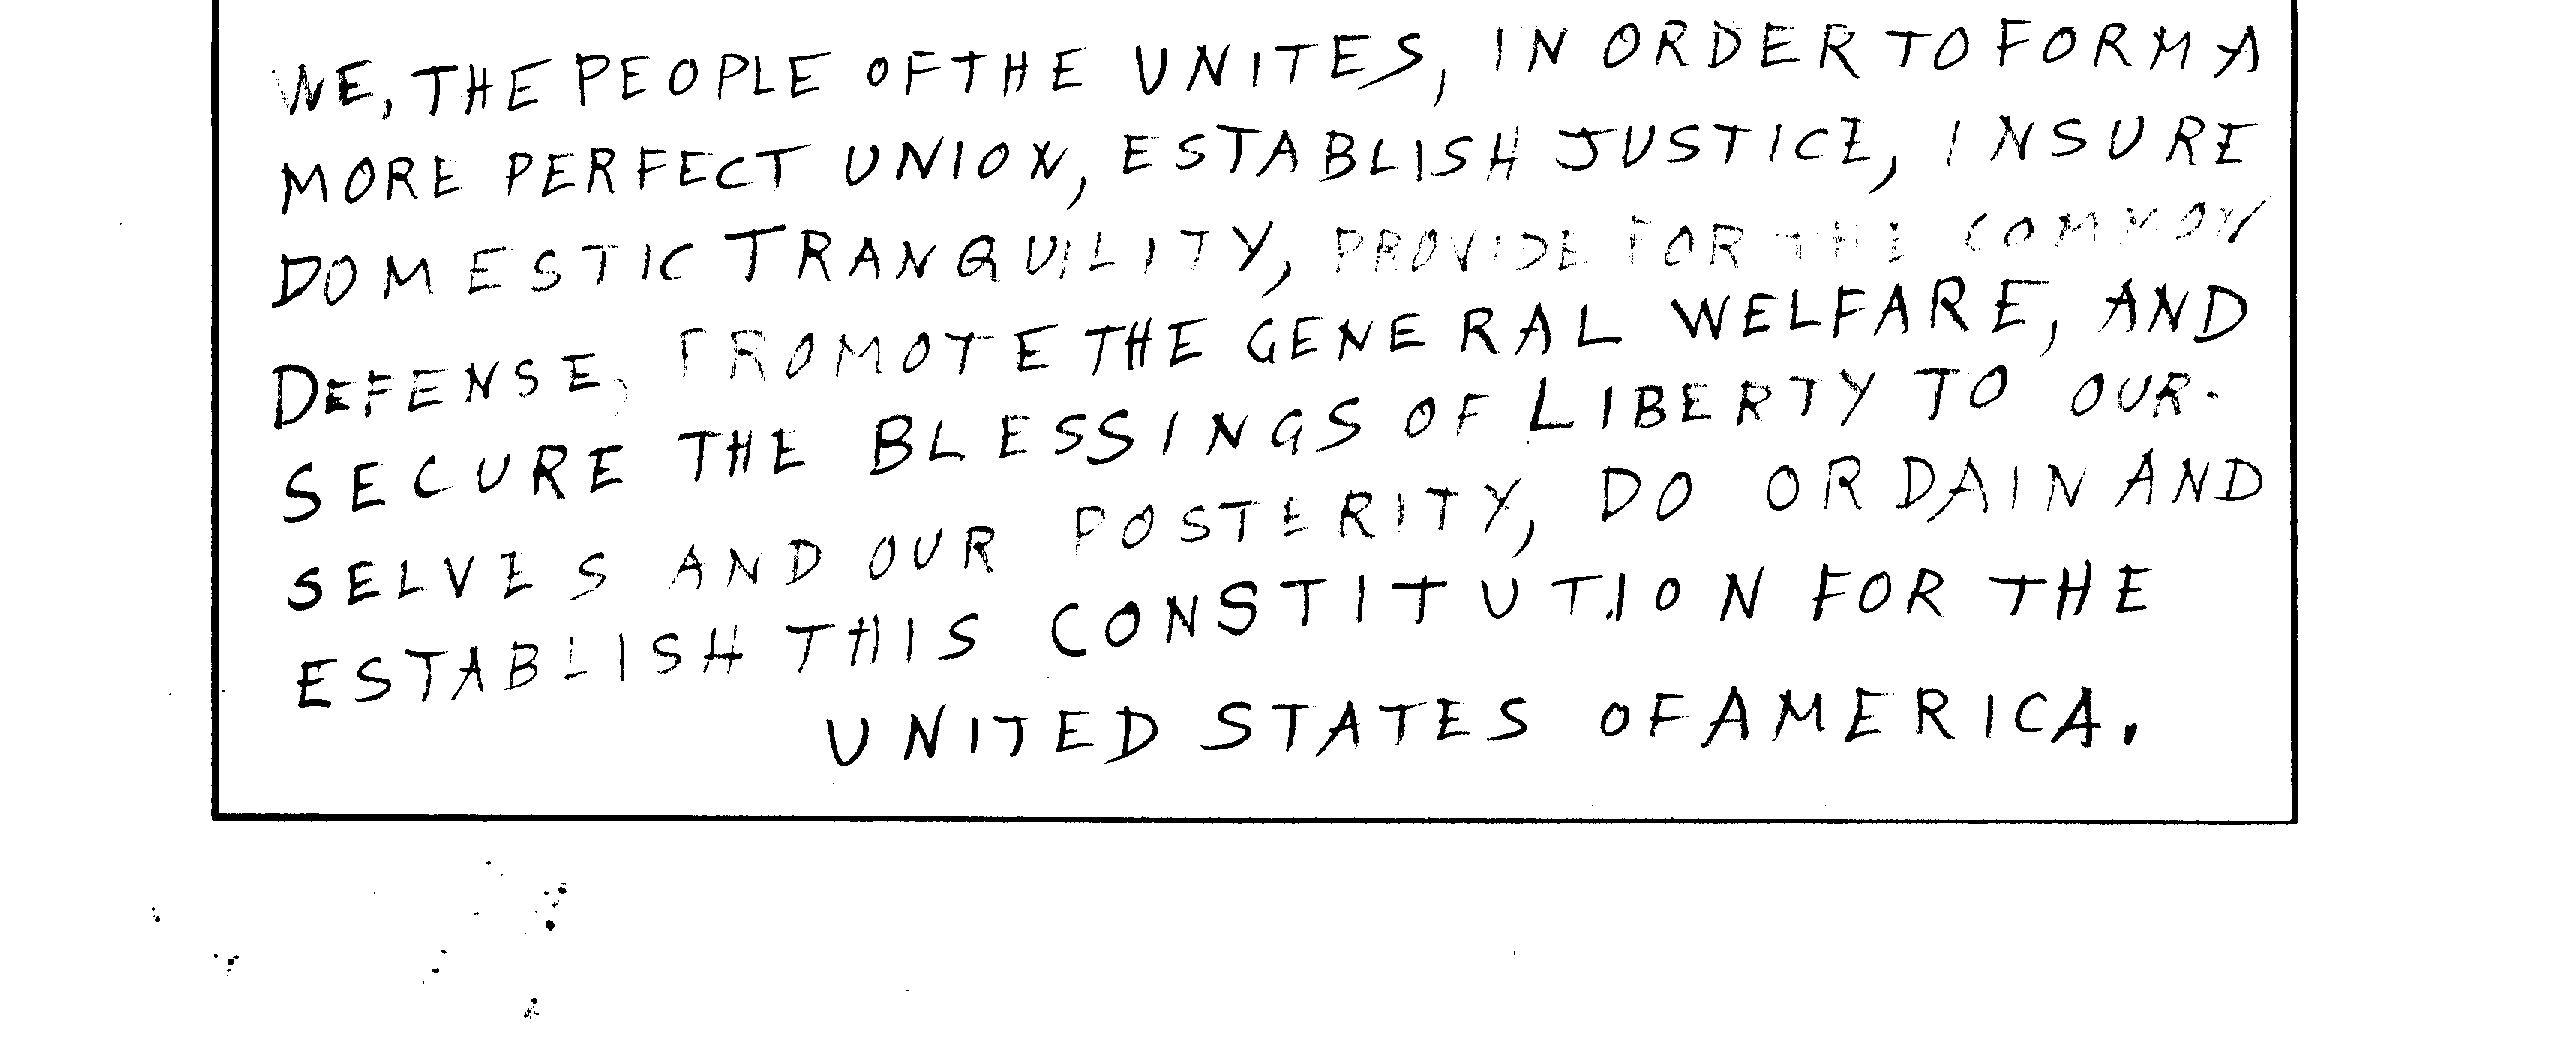 WE, THE PEOPLE OF THE UNITES, IN ORDER TO FORM A
MORE PERFECT UNION, ESTABLISH JUSTICE, INSURE
DOMESTIC TRANQUILITY, PROVIDE FOR THE COMMON
DEFENSE, PROMOTE THE GENERAL WELFARE, AND
SECURE THE BLESSINGS OF LIBERTY TO OUR-
SELVES AND OUR POSTERITY, DO ORDAIN AND
ESTABLISH THIS CONSTITUTION FOR THE
UNITED STATES OF AMERICA.